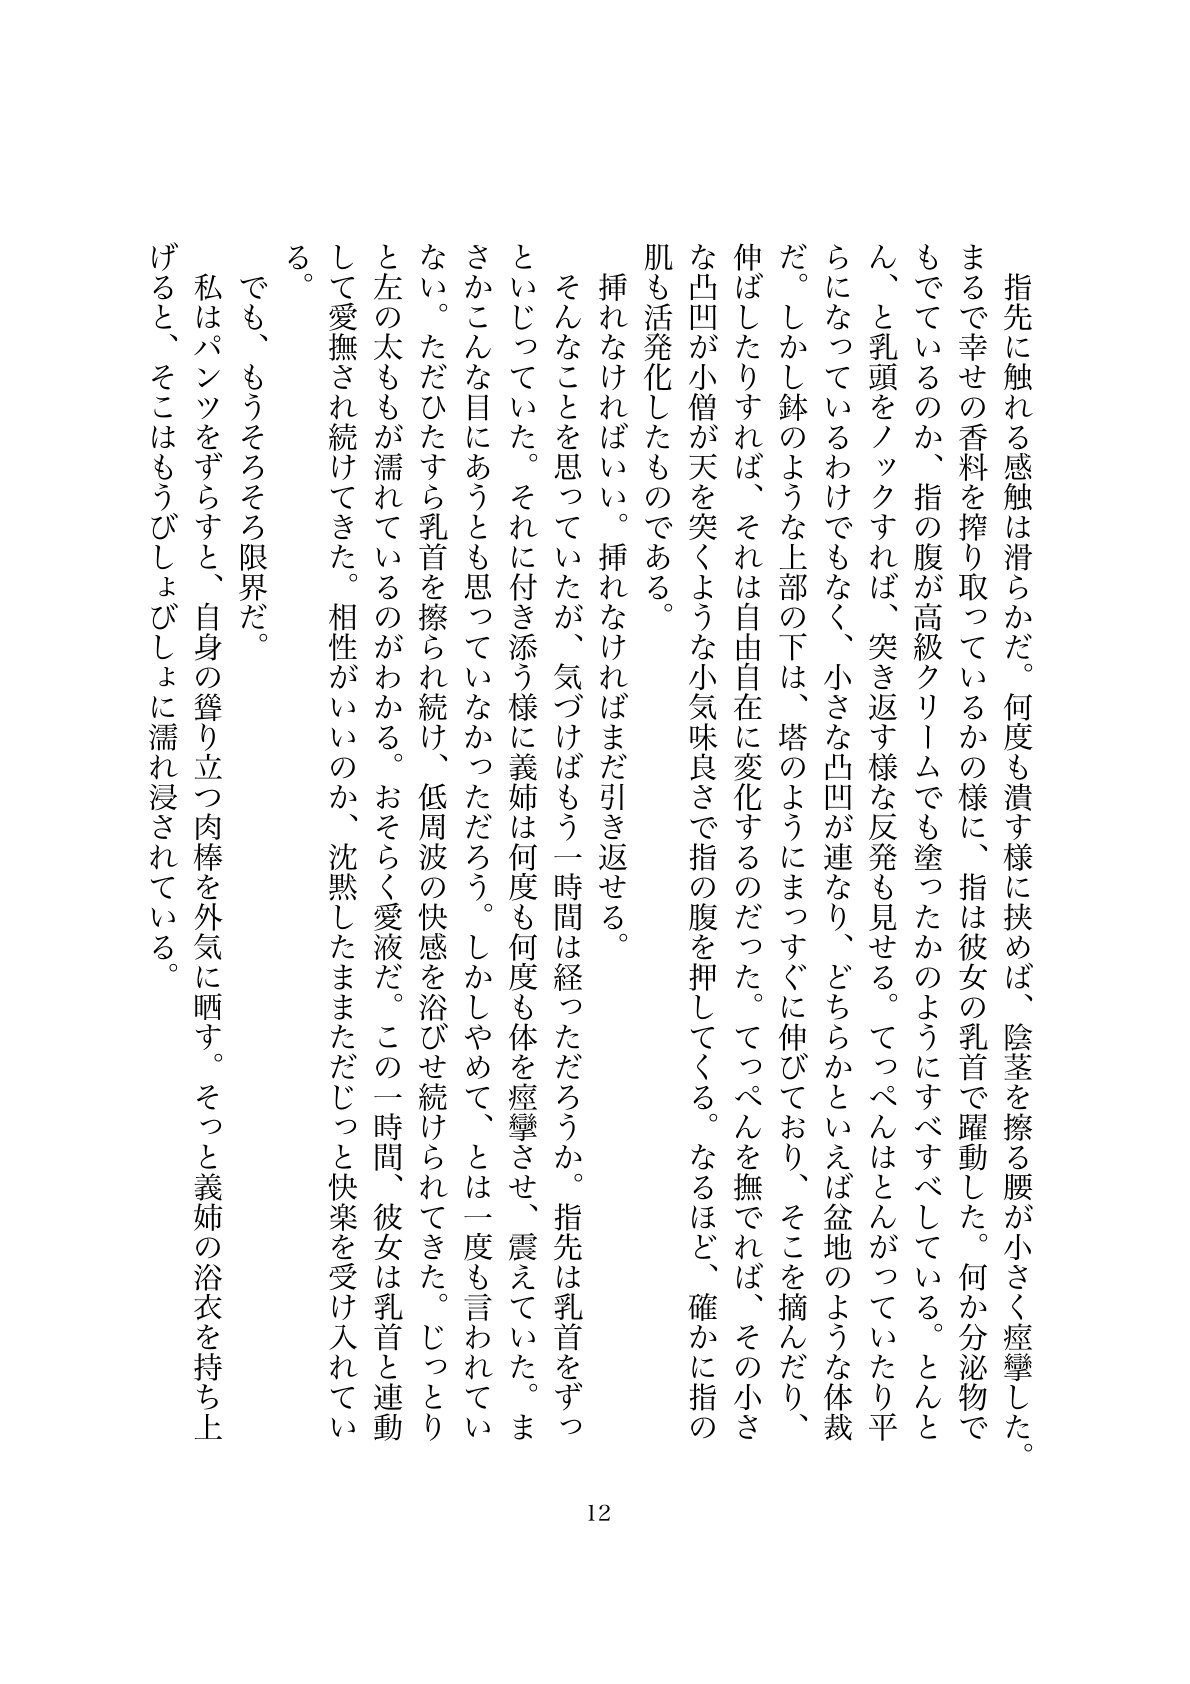 指先に触れる感触は滑らかだ。何度も潰す様に挟めば、陰茎を擦る腰が小さく痙攣した。
まるで幸せの香料を搾り取っているかの様に、指は彼女の乳首で躍動した。何か分泌物で
もでているのか、指の腹が高級クリームでも塗ったかのようにすべすべしている。とんと
ん、と乳頭をノックすれば、突き返す様な反発も見せる。てっぺんはとんがっていたり平
らになっているわけでもなく、小さな凸凹が連なり、どちらかといえば盆地のような体裁
だ。しかし鉢のような上部の下は、塔のようにまっすぐに伸びており、そこを摘んだり、
伸ばしたりすれば、それは自由自在に変化するのだった。てっぺんを撫でれば、その小さ
な凸凹が小僧が天を突くような小気味良さで指の腹を押してくる。なるほど、確かに指の
肌も活発化したものである。
　挿れなければいい。挿れなければまだ引き返せる。
　そんなことを思っていたが、気づけばもう一時間は経っただろうか。指先は乳首をずっ
といじっていた。それに付き添う様に義姉は何度も何度も体を痙攣させ、震えていた。ま
さかこんな目にあうとも思っていなかっただろう。しかしやめて、とは一度も言われてい
ない。ただひたすら乳首を擦られ続け、低周波の快感を浴びせ続けられてきた。じっとり
と左の太ももが濡れているのがわかる。おそらく愛液だ。この一時間、彼女は乳首と連動
して愛撫され続けてきた。相性がいいのか、沈黙したままただじっと快楽を受け入れてい
る。
　でも、もうそろそろ限界だ。
　私はパンツをずらすと、自身の聳り立つ肉棒を外気に晒す。そっと義姉の浴衣を持ち上
げると、そこはもうびしょびしょに濡れ浸されている。
12